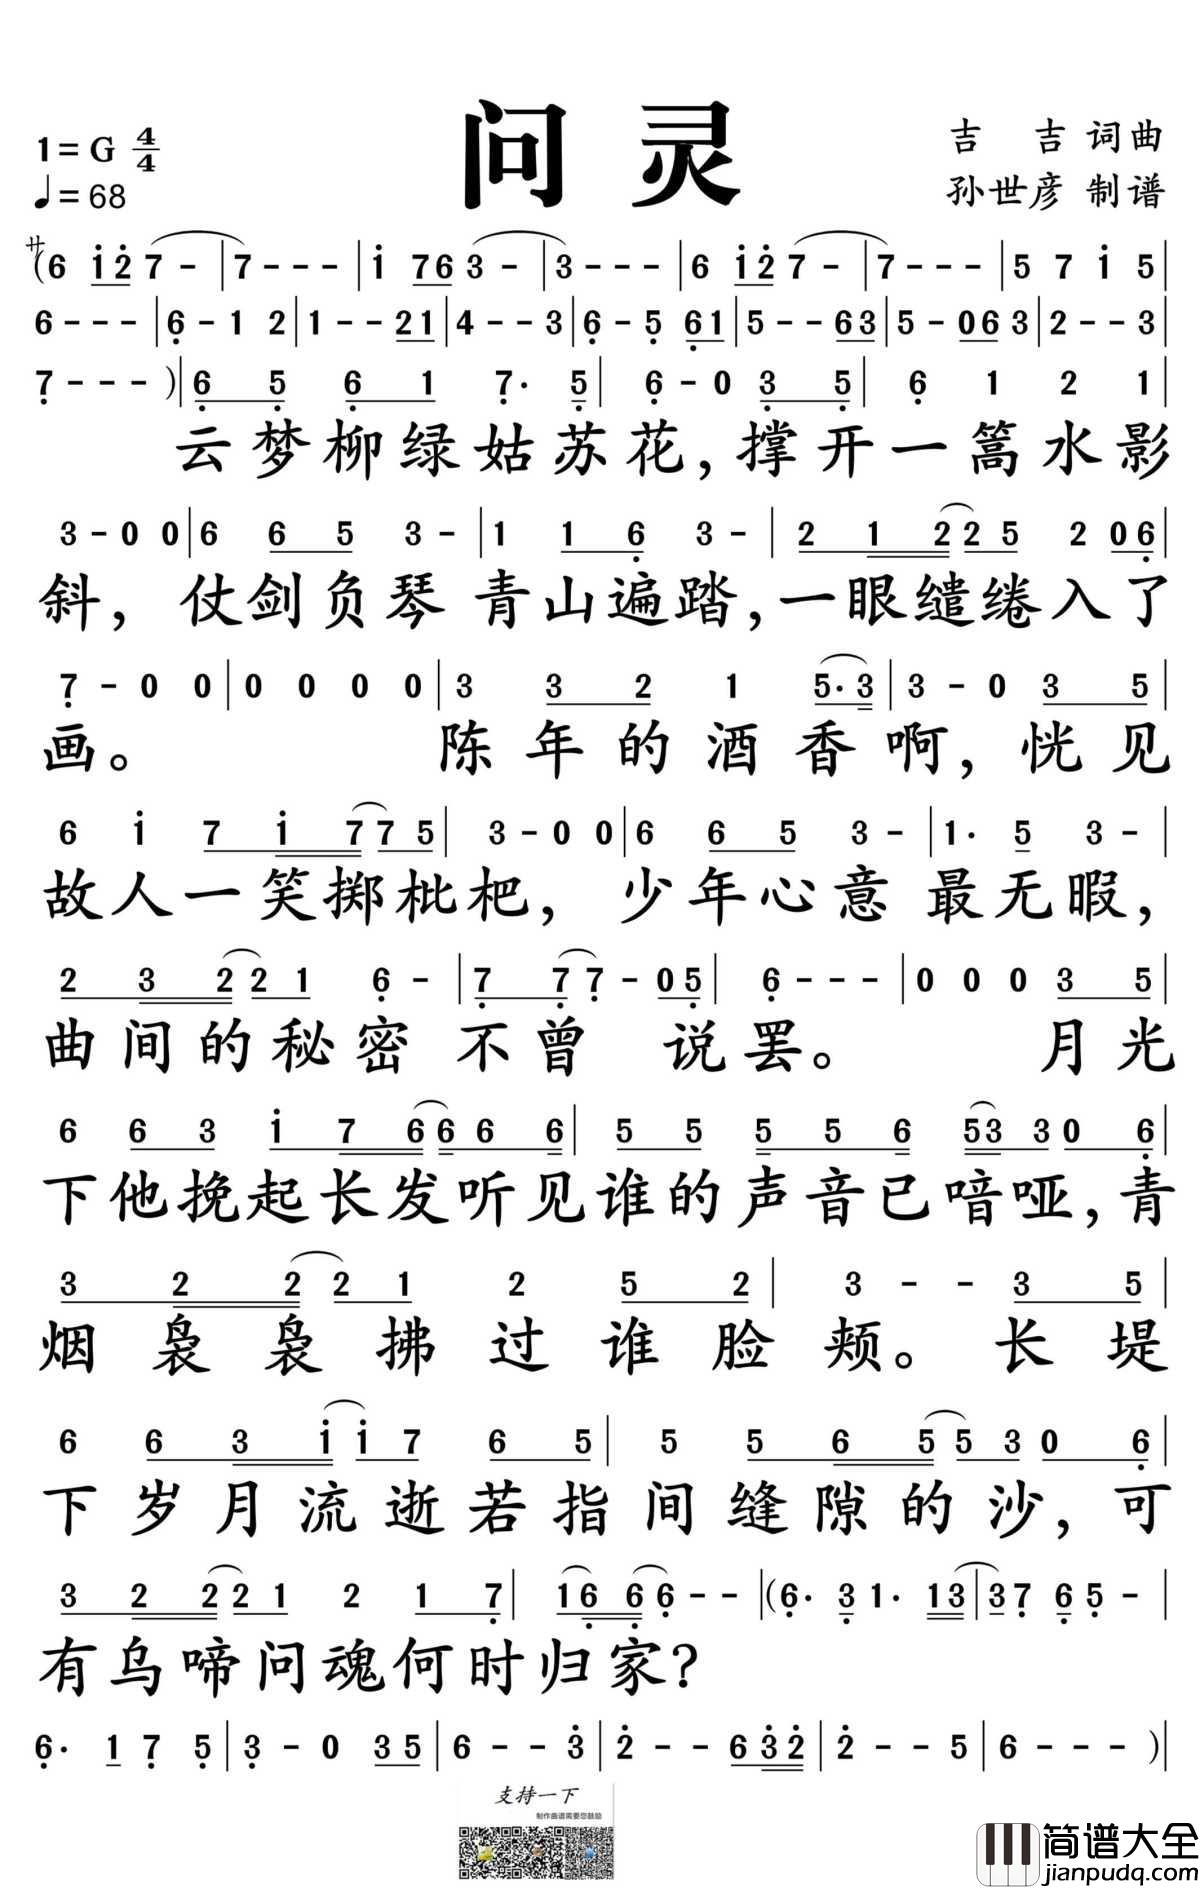 问灵
1=G 4/4
♩=68
吉 吉 词曲
孙世彦 制谱
サ(6 i̇ 2̇ 7 - | 7 - - - | i̇ 7 6 3 - | 3 - - - | 6 i̇ 2̇ 7 - | 7 - - - | 5 7 i̇ 5 |
6 - - - | 6̣ - 1 2 | 1 - - 2 1 | 4 - - 3 | 6̣ - 5̣ 6̣ 1 | 5 - - 6 3 | 5 - 0 6 3 | 2 - - 3 |
7̣ - - - ) | 6̣ 5̣ 6̣ 1 7̣· 5̣ | 6̣ - 0 3̣ 5̣ | 6̣ 1 2 1 |
云梦柳绿姑苏花，撑开一篙水影
3 - 0 0 | 6 6 5 3 - | 1 1 6̣ 3 - | 2 1 2 2 5 2 0 6̣ |
斜，仗剑负琴 青山遍踏，一眼缱绻入了
7̣ - 0 0 | 0 0 0 0 | 3 3 2 1 5· 3 | 3 - 0 3 5 |
画。 陈年的酒香啊，恍见
6 i̇ 7 i̇ 7 7 5 | 3 - 0 0 | 6 6 5 3 - | 1· 5 3 - |
故人一笑掷枇杷，少年心意 最无暇，
2 3 2 2 1 6̣ - | 7̣ 7̣ 7̣ - 0 5̣ | 6̣ - - - | 0 0 0 3 5 |
曲间的秘密 不曾 说罢。 月光
6 6 3 i̇ 7 6 6 6 6 | 5 5 5 5 6 5 3 3 0 6̣ |
下他挽起长发听见谁的声音已喑哑，青
3 2 2 2 1 2 5 2 | 3 - - 3 5 |
烟袅袅拂过谁脸颊。长堤
6 6 3 i̇ i̇ 7 6 5 | 5 5 6 5 5 3 0 6̣ |
下岁月流逝若指间缝隙的沙，可
3 2 2 2 1 2 1 7̣ | 1 6̣ 6̣ 6̣ - - | (6̣· 3̣ 1· 1 3 | 3 7̣ 6̣ 5̣ - |
有乌啼问魂何时归家?
6̣· 1 7̣ 5̣ | 3̣ - 0 3 5 | 6 - - 3̇ | 2̇ - - 6 3̇ 2̇ | 2̇ - - 5 | 6 - - - ) |
支持一下
制作曲谱需要您鼓励
简谱大全
jianpudq.com